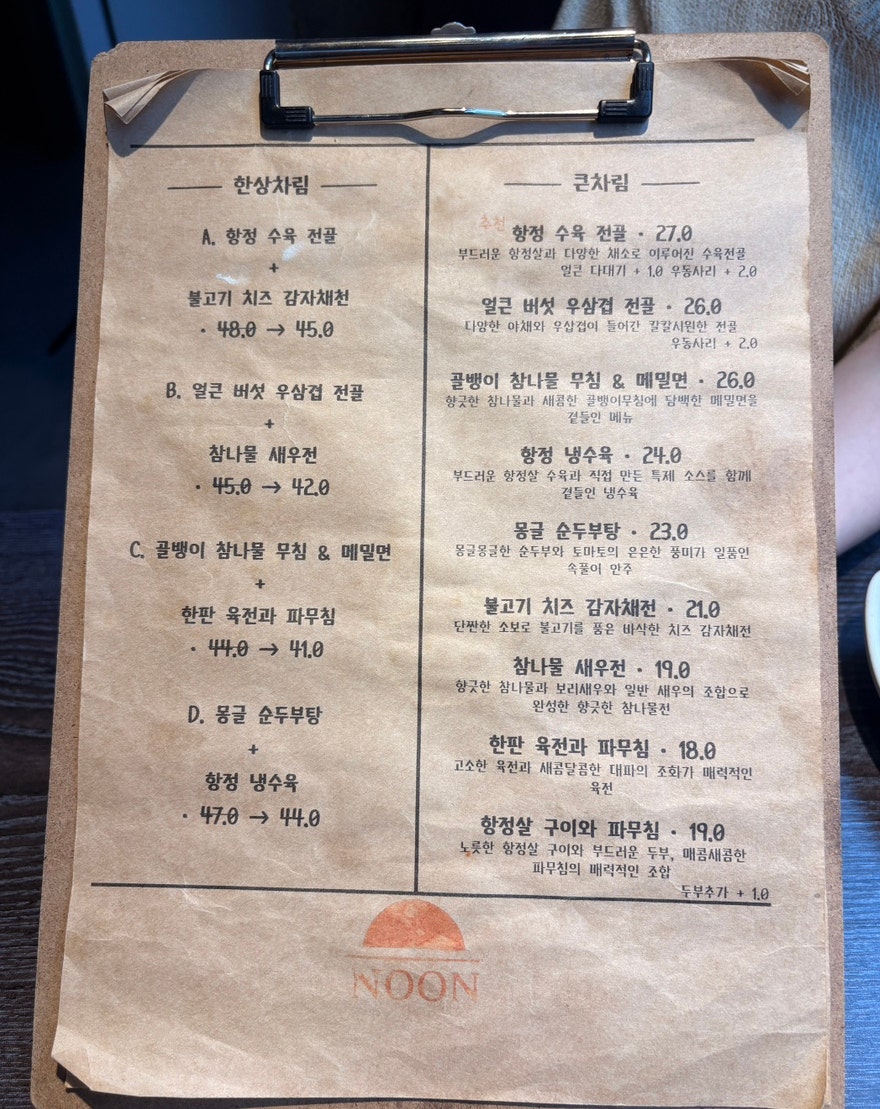 한상차림
A. 항정 수육 전골
+
불고기 치즈 감자채천
· 48.0 → 45.0
B. 얼큰 버섯 우삼겹 전골
+
참나물 새우전
· 45.0 → 42.0
C. 골뱅이 참나물 무침 & 메밀면
+
한판 육전과 파무침
· 44.0 → 41.0
D. 몽글 순두부탕
+
항정 냉수육
· 47.0 → 44.0
큰차림
추천
항정 수육 전골 · 27.0
부드러운 항정살과 다양한 채소로 이루어진 수육전골
얼큰 다대기 + 1.0 우동사리 + 2.0
얼큰 버섯 우삼겹 전골 · 26.0
다양한 야채와 우삽겹이 들어간 칼칼시원한 전골
우동사리 + 2.0
골뱅이 참나물 무침 & 메밀면 · 26.0
향긋한 참나물과 새콤한 골뱅이무침에 담백한 메밀면을
곁들인 메뉴
항정 냉수육 · 24.0
부드러운 항정살 수육과 직접 만든 특제 소스를 함께
곁들인 냉수육
몽글 순두부탕 · 23.0
몽글몽글한 순두부와 토마토의 은은한 풍미가 일품인
속풀이 안주
불고기 치즈 감자채전 · 21.0
단짠한 소보로 불고기를 품은 바삭한 치즈 감자채전
참나물 새우전 · 19.0
향긋한 참나물과 보리새우와 일반 새우의 조합으로
완성한 향긋한 참나물전
한판 육전과 파무침 · 18.0
고소한 육전과 새콤달콤한 대파의 조화가 매력적인
육전
항정살 구이와 파무침 · 19.0
노릇한 항정살 구이와 부드러운 두부, 매콤새콤한
파무침의 매력적인 조합
두부추가 + 1.0
NOON